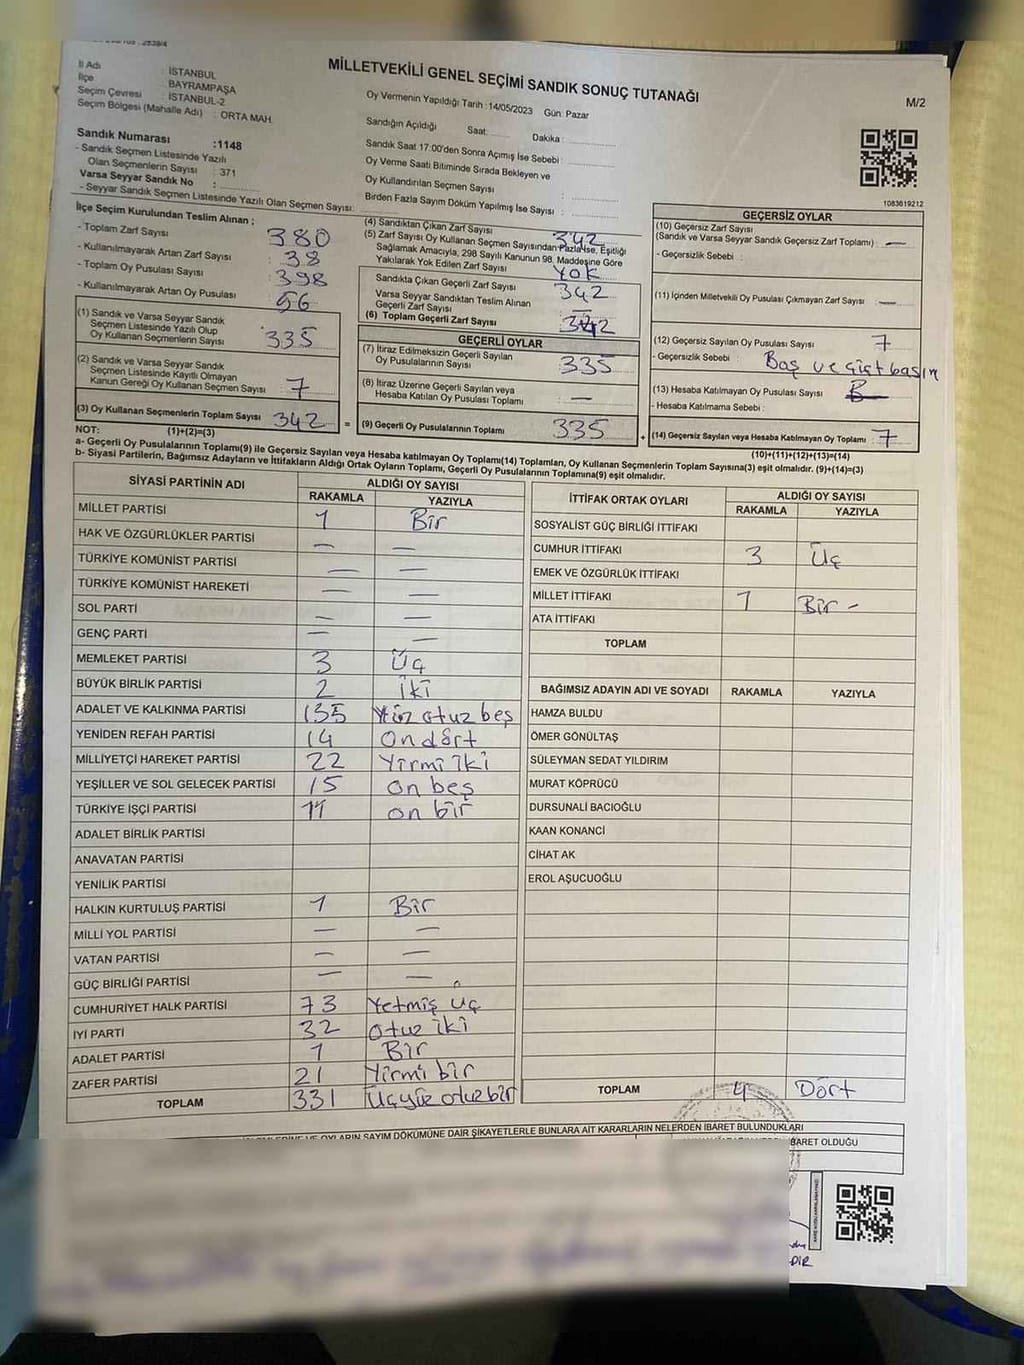 MİLLETVEKİLİ GENEL SEÇİMİ SANDIK SONUÇ TUTANAĞI
M/2
İl Adı : İSTANBUL
İlçe : BAYRAMPAŞA
Seçim Çevresi : İSTANBUL-2
Seçim Bölgesi (Mahalle Adı) : ORTA MAH.
Sandık Numarası :1148
- Sandık Seçmen Listesinde Yazılı
Olan Seçmenlerin Sayısı : 371
Varsa Seyyar Sandık No :
- Seyyar Sandık Seçmen Listesinde Yazılı Olan Seçmen Sayısı:
Oy Vermenin Yapıldığı Tarih :14/05/2023 Gün: Pazar
Sandığın Açıldığı Saat: Dakika :
Sandık Saat 17:00'den Sonra Açımış İse Sebebi :
Oy Verme Saati Bitiminde Sırada Bekleyen ve
Oy Kullandırılan Seçmen Sayısı :
Birden Fazla Sayım Döküm Yapılmış İse Sayısı :
1083619212
İlçe Seçim Kurulundan Teslim Alınan :
- Toplam Zarf Sayısı : 380
- Kullanılmayarak Artan Zarf Sayısı : 38
- Toplam Oy Pusulası Sayısı : 398
- Kullanılmayarak Artan Oy Pusulası : 56
(1) Sandık ve Varsa Seyyar Sandık
Seçmen Listesinde Yazılı Olup
Oy Kullanan Seçmenlerin Sayısı : 335
(2) Sandık ve Varsa Seyyar Sandık
Seçmen Listesinde Kayıtlı Olmayan
Kanun Gereği Oy Kullanan Seçmen Sayısı : 7
(3) Oy Kullanan Seçmenlerin Toplam Sayısı : 342
(4) Sandıktan Çıkan Zarf Sayısı : 342
(5) Zarf Sayısı Oy Kullanan Seçmen Sayısından Fazla İse, Eşitliği
Sağlamak Amacıyla, 298 Sayılı Kanunun 98. Maddesine Göre
Yakılarak Yok Edilen Zarf Sayısı : YOK
Sandıkta Çıkan Geçerli Zarf Sayısı : 342
Varsa Seyyar Sandıktan Teslim Alınan
Geçerli Zarf Sayısı : —
(6) Toplam Geçerli Zarf Sayısı : 342
GEÇERLİ OYLAR
(7) İtiraz Edilmeksizin Geçerli Sayılan
Oy Pusulalarının Sayısı : 335
(8) İtiraz Üzerine Geçerli Sayılan veya
Hesaba Katılan Oy Pusulası Toplamı : —
= (9) Geçerli Oy Pusulalarının Toplamı : 335
GEÇERSİZ OYLAR
(10) Geçersiz Zarf Sayısı
(Sandık ve Varsa Seyyar Sandık Geçersiz Zarf Toplamı) : —
- Geçersizlik Sebebi :
(11) İçinden Milletvekili Oy Pusulası Çıkmayan Zarf Sayısı : —
(12) Geçersiz Sayılan Oy Pusulası Sayısı : 7
- Geçersizlik Sebebi : Boş ve çift basım
(13) Hesaba Katılmayan Oy Pusulası Sayısı :
- Hesaba Katılmama Sebebi :
+ (14) Geçersiz Sayılan veya Hesaba Katılmayan Oy Toplamı : 7
NOT: (1)+(2)=(3) (10)+(11)+(12)+(13)=(14)
a- Geçerli Oy Pusulalarının Toplamı(9) ile Geçersiz Sayılan veya Hesaba katılmayan Oy Toplamı(14) Toplamları, Oy Kullanan Seçmenlerin Toplam Sayısına(3) eşit olmalıdır. (9)+(14)=(3)
b- Siyasi Partilerin, Bağımsız Adayların ve İttifakların Aldığı Ortak Oyların Toplamı, Geçerli Oy Pusulalarının Toplamına(9) eşit olmalıdır.
SİYASİ PARTİNİN ADI ALDIĞI OY SAYISI
RAKAMLA YAZIYLA
MİLLET PARTİSİ 1 Bir
HAK VE ÖZGÜRLÜKLER PARTİSİ — —
TÜRKİYE KOMÜNİST PARTİSİ — —
TÜRKİYE KOMÜNİST HAREKETİ — —
SOL PARTİ — —
GENÇ PARTİ — —
MEMLEKET PARTİSİ 3 Üç
BÜYÜK BİRLİK PARTİSİ 2 iki
ADALET VE KALKINMA PARTİSİ 135 Yüz otuz beş
YENİDEN REFAH PARTİSİ 14 On dört
MİLLİYETÇİ HAREKET PARTİSİ 22 Yirmi iki
YEŞİLLER VE SOL GELECEK PARTİSİ 15 on beş
TÜRKİYE İŞÇİ PARTİSİ 11 on bir
ADALET BİRLİK PARTİSİ
ANAVATAN PARTİSİ
YENİLİK PARTİSİ
HALKIN KURTULUŞ PARTİSİ 1 Bir
MİLLİ YOL PARTİSİ — —
VATAN PARTİSİ — —
GÜÇ BİRLİĞİ PARTİSİ — —
CUMHURİYET HALK PARTİSİ 73 Yetmiş üç
İYİ PARTİ 32 Otuz iki
ADALET PARTİSİ 1 Bir
ZAFER PARTİSİ 21 Yirmi bir
TOPLAM 331 Üçyüz otuz bir
İTTİFAK ORTAK OYLARI ALDIĞI OY SAYISI
RAKAMLA YAZIYLA
SOSYALİST GÜÇ BİRLİĞİ İTTİFAKI
CUMHUR İTTİFAKI 3 Üç
EMEK VE ÖZGÜRLÜK İTTİFAKI
MİLLET İTTİFAKI 1 Bir -
ATA İTTİFAKI
TOPLAM
BAĞIMSIZ ADAYIN ADI VE SOYADI RAKAMLA YAZIYLA
HAMZA BULDU
ÖMER GÖNÜLTAŞ
SÜLEYMAN SEDAT YILDIRIM
MURAT KÖPRÜCÜ
DURSUNALİ BACIOĞLU
KAAN KONANCİ
CİHAT AK
EROL AŞUCUOĞLU
TOPLAM 4 Dört
OYLARIN SAYIM DÖKÜMÜNE DAİR ŞİKAYETLERLE BUNLARA AİT KARARLARIN NELERDEN İBARET BULUNDUKLARI
BARET OLDUĞU